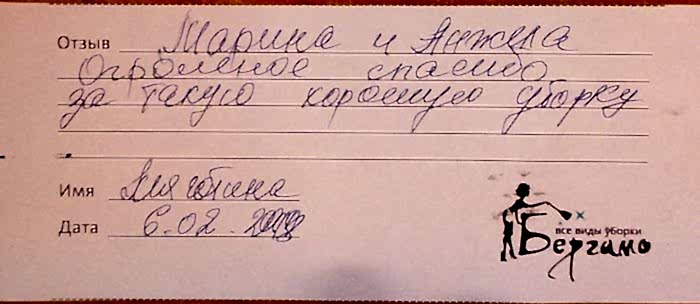 Отзыв Марина и Анжела
Огромное спасибо
за такую хорошую уборку
Имя
Дата 6.02.
все виды уборки
Бергамо